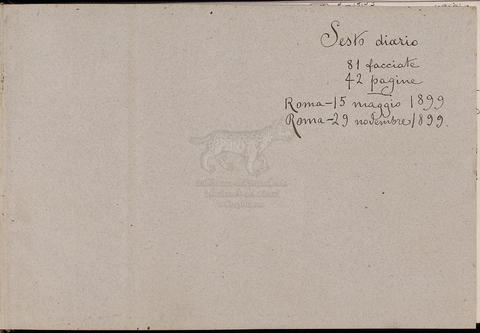 Sesto diario
81 facciate
42 pagine
Roma-15 maggio 1899
Roma-29 novembre 1899.